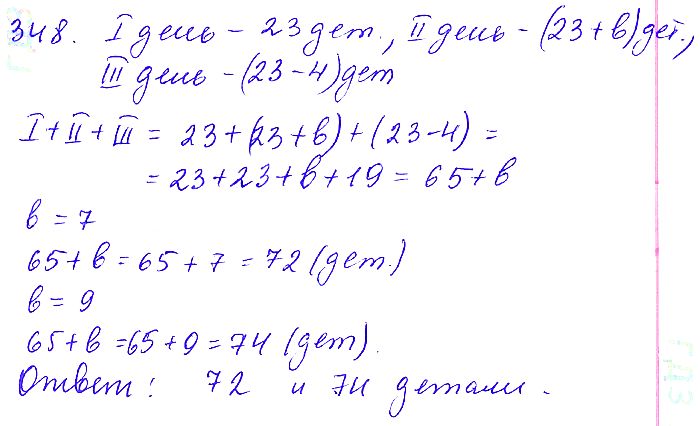 348. I день - 23 дет., II день - (23 + в) дет.,
III день - (23 - 4) дет
I + II + III = 23 + (23 + в) + (23 - 4) =
= 23 + 23 + в + 19 = 65 + в
в = 7
65 + в = 65 + 7 = 72 (дет.)
в = 9
65 + в = 65 + 9 = 74 (дет).
Ответ: 72 и 74 детали.